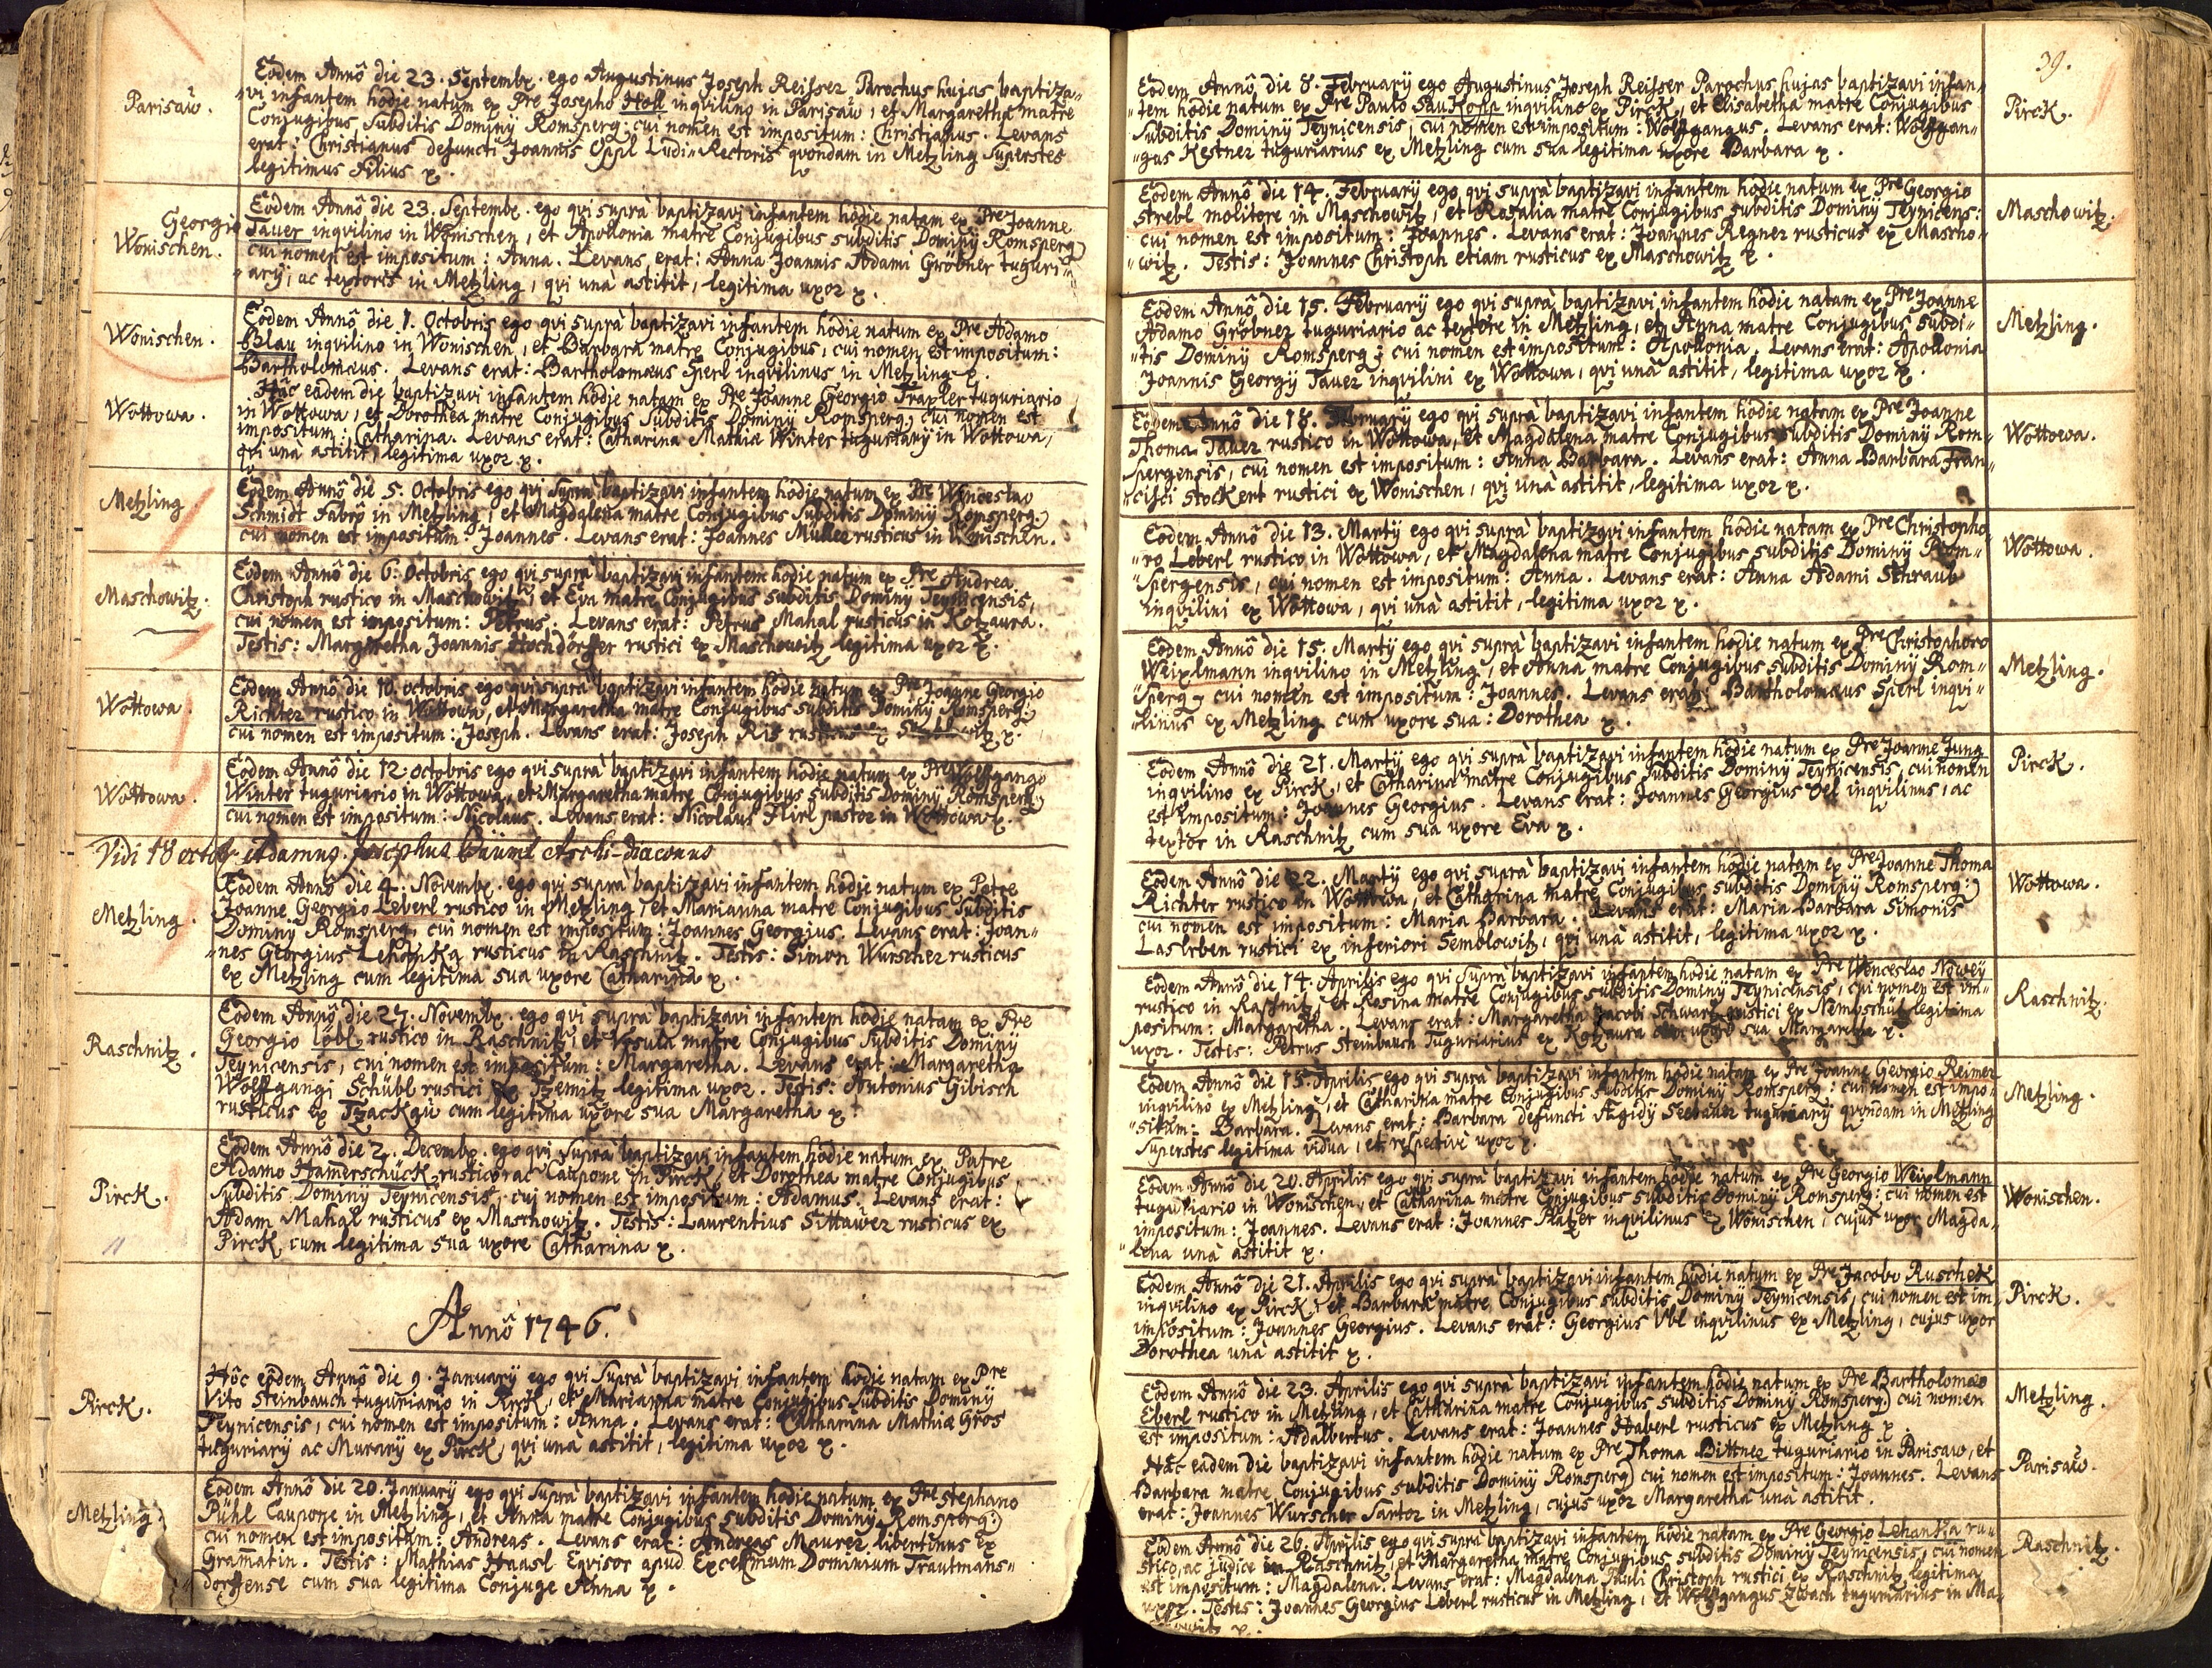 Parisaŵ.
Eodem Annô die 23. Septembr. ego Augustinus Joseph Reisser Parochus hujas baptiza-
-vi infantem hodie natum ex Pre Josepho Holl inqvilino in Parisaŵ, et Margaretha matre
Conjugibus Subditis Dominÿ Romsperg: cui nomen est impositum: Christianus. Levans
erat: Christianus defuncti Joannis Oppl Ludi-Rectoris qvondam in Metzling Superstes
legitimus Filius x.
Wonischen.
Eodem Annô die 23. Septembr. ego qvi suprà baptizavi infantem hodie natam ex Pre Joanne
Georgio Taver inqvilino in Wonischen, et Apollonia matre Conjugibus subditis Dominÿ Romsperg:
cui nomen est impositum: Anna. Levans erat: Anna Joannis Adami Gröbner tuguri-
-arÿ, ac textoris in Metzling, qvi unà astitit, legitima uxor x.
Wonischen.
Eodem Annô die 1. Octobris ego qvi suprà baptizavi infantem hodie natum ex Pre Adamo
Blau inqvilino in Wonischen, et Barbara matre Conjugibus, cui nomen est impositum:
Bartholomæus. Levans erat: Bartholomæus Sperl inqvilinus in Metzling x.
Wottowa.
Hâc eadem die baptizavi infantem hodie natam ex Pre Joanne Georgio Traxler tuguriario
in Wottowa, et Dorothea matre Conjugibus Subditis Dominÿ Romsperg; cui nomen est
impositum: Catharina. Levans erat: Catharina Mathiæ Winter tuguriarÿ in Wottowa,
qvi unà astitit, legitima uxor x.
Metzling
Eodem Annô die 5. Octobris ego qvi suprà baptizavi infantem hodie natum ex Pre Wenceslao
Schmidt Fabro in Metzling, et Magdalena matre Conjugibus Subditis Dominÿ Romsperg:
cui nomen est impositum: Joannes. Levans erat: Joannes Müller rusticus in Wonischen.
Maschowitz.
Eodem Annô die 6. Octobris ego qvi suprà baptizavi infantem hodie natum ex Pre Andrea
Christoph rustico in Maschowitz, et Eva matre Conjugibus subditis Dominÿ Teÿnicensis,
cui nomen est impositum: Petrus. Levans erat: Petrus Mahal rusticus in Kotzaura.
Testis: Margaretha Joannis Hochdörffer rustici ex Maschowitz legitima uxor x.
Wottowa.
Eodem Annô die 10. octobris ego qvi suprà baptizavi infantem hodie natum ex Pre Joanne Georgio
Richter rustico in Wottowa, et Margaretha matre Conjugibus subditis Dominÿ Romsperg:
cui nomen est impositum: Joseph. Levans erat: Joseph Ris
Wottowa.
Eodem Annô die 12. octobris ego qvi suprà baptizavi infantem hodie natum ex Pre Wolffgango
Winter tuguriario in Wottowa, et Margaretha matre Conjugibus subditis Dominÿ Romsperg:
cui nomen est impositum: Nicolaus. Levans erat: Nicolaus Hirl pastor in Wottowa x.
Vidi 18 octob Adamus Josephus Bäuml Archi-diaconus
Metzling.
Eodem Annô die 4. Novembr. ego qvi suprà baptizavi infantem hodie natum ex Patre
Joanne Georgio Leberl rustico in Metzling, et Marianna matre Conjugibus Subditis
Dominÿ Romsperg, cui nomen est impositum: Joannes Georgius. Levans erat: Joan-
-nes Georgius Lehanka rusticus in Raschnitz. Testis: Simon Wurscher rusticus
ex Metzling cum legitima sua uxore Catharina x.
Raschnitz.
Eodem Annô die 27. Novembr. ego qvi suprà baptizavi infantem hodie natam ex Pre
Georgio Löbl rustico in Raschnitz, et Ursula matre Conjugibus Subditis Dominÿ
Teÿnicensis, cui nomen est impositum: Margaretha. Levans erat: Margaretha
Wolffgangi Schübl rustici ex Tzemitz legitima uxor. Testis: Antonius Gibisch
rusticus ex Tzackau cum legitima uxore sua Margaretha x.
Pirck.
Eodem Annô die 2. Decembr. ego qvi suprà baptizavi infantem hodie natum ex Patre
Adamo Hamerschück rustico ac Caupone in Pirck, et Dorothea matre Conjugibus
subditis Dominÿ Teÿnicensis, cui nomen est impositum: Adamus. Levans erat:
Adam Mahal rusticus ex Maschowitz. Testis: Laurentius Sittawer rusticus ex
Pirck cum legitima sua uxore Catharina x.
Annô 1746.
Pirck.
Hôc eôdem Annô die 9. Januarÿ ego qvi suprà baptizavi infantem hodie natam ex Pre
Vito Steinbauch tuguriario in Pirck, et Marianna matre Conjugibus subditis Dominÿ
Teÿnicensis, cui nomen est impositum: Anna. Levans erat: Catharina Mathiæ Gros
tuguriarÿ ac Murarÿ ex Pirck, qvi unà astitit, legitima uxor x.
Metzling.
Eodem Annô die 20. Januarÿ ego qvi suprà baptizavi infantem hodie natum ex Pre Stephano
Pühl Caupone in Metzling, et Anna matre Conjugibus subditis Dominÿ Romsperg:
cui nomen est impositum: Andreas. Levans erat: Andreas Maurer libertinus ex
Gramatin. Testis: Mathias Haasl Eqvisor apud Excelsmum Dominium Trautmans-
dorffense cum sua legitima Conjuge Anna x.
39.
Pirck.
Eodem Annô, die 8. Februarÿ ego Augustinus Joseph Reisser Parochus hujas baptizavi infan-
-tem hodie natum ex Pre Paulo Saukopp inqvilino ex Pirck, et Elisabetha matre Conjugibus
Subditis Dominÿ Teÿnicensis, cui nomen est impositum: Wolffgangus. Levans erat: Wolffgan-
-gus Kestner tuguriarius ex Metzling cum sua legitima uxore Barbara x.
Maschowitz.
Eodem Annô die 14. Februarÿ ego qvi suprà baptizavi infantem hodie natum ex Pre Georgio
Strebl molitore in Maschowitz, et Rosalia matre Conjugibus subditis Dominÿ Teÿnicens:
cui nomen est impositum: Joannes. Levans erat: Joannes Regner rusticus ex Mascho-
-witz. Testis: Joannes Christoph etiam rusticus ex Maschowitz x.
Metzling.
Eodem Annô die 15. Februarÿ ego qvi suprà baptizavi infantem hodie natam ex Pre Joanne
Adamo Gröbner tuguriario ac textore in Metzling, et Anna matre Conjugibus subdi-
-tis Dominÿ Romsperg; cui nomen est impositum: Apollonia. Levans erat: Apollonia
Joannis Georgÿ Taver inqvilini ex Wottowa, qvi unà astitit, legitima uxor x.
Wottowa.
Eodem Annô die 18. Februarÿ ego qvi suprà baptizavi infantem hodie natam ex Pre Joanne
Thoma Taver rustico in Wottowa, et Magdalena matre Conjugibus subditis Dominÿ Rom-
spergensis, cui nomen est impositum: Anna Barbara. Levans erat: Anna Barbara Fran-
-cisci Stockert rustici ex Wonischen, qvi unà astitit, legitima uxor x.
Wottowa.
Eodem Annô die 13. Martÿ ego qvi suprà baptizavi infantem hodie natam ex Pre Christopho
-ro Leberl rustico in Wottowa, et Magdalena matre Conjugibus subditis Dominÿ Rom-
-spergensis, cui nomen est impositum: Anna. Levans erat: Anna Adami Schraub
inqvilini ex Wottowa, qvi unà astitit, legitima uxor x.
Metzling.
Eodem Annô die 15. Martÿ ego qvi suprà baptizavi infantem hodie natum ex Pre Christophoro
Weixlmann inqvilino in Metzling, et Anna matre Conjugibus subditis Dominÿ Rom-
-sperg, cui nomen est impositum: Joannes. Levans erat: Bartholomæus Sperl inqvi-
-linus ex Metzling cum uxore sua: Dorothea x.
Pirck.
Eodem Annô die 21. Martÿ ego qvi suprà baptizavi infantem hodie natum ex Pre Joanne Jung
inqvilino ex Pirck, et Catharina matre Conjugibus Subditis Dominÿ Teÿnicensis, cui nomen
est impositum: Joannes Georgius. Levans erat: Joannes Georgius Vbl inqvilinus, ac
textor in Raschnitz cum sua uxore Eva x.
Wottowa.
Eodem Annô die 22. Martÿ ego qvi suprà baptizavi infantem hodie natam ex Pre Joanne Thoma
Richter rustico in Wottowa, et Catharina matre Conjugibus subditis Dominÿ Romsperg:
cui nomen est impositum: Maria Barbara. Levans erat: Maria Barbara Simonis
Laslrben rustici ex inferiori Semblowitz, qvi unà astitit, legitima uxor x.
Raschnitz.
Eodem Annô die 14. Aprilis ego qvi suprà baptizavi infantem hodie natam ex Pre Wenceslao Nowey
rustico in Raschnitz, et Rosina matre Conjugibus subditis Dominÿ Teÿnicensis, cui nomen est im-
positum: Margaretha. Levans erat: Margaretha Jacobi Schwartz rustici ex Nemoschitz legitima
uxor. Testes: Petrus Steinbauch Tuguriarius ex Kotzaura cum uxore sua Margaretha x.
Metzling.
Eodem Annô die 15. Aprilis ego qvi suprà baptizavi infantem hodie natam ex Pre Joanne Georgio Reimer
inqvilino ex Metzling, et Catharina matre Conjugibus subditis Dominÿ Romsperg: cui nomen est impo-
situm: Barbara. Levans erat: Barbara defuncti Ægidÿ Seebauer tuguriarÿ qvondam in Metzling
Superstes legitima vidua, et respectivè uxor x.
Wonischen.
Eodem Annô die 20. Aprilis ego qvi suprà baptizavi infantem hodie natum ex Pre Georgio Weixlmann
tuguriario in Wonischen, et Catharina matre Conjugibus subditis Dominÿ Romsperg: cui nomen est
impositum: Joannes. Levans erat: Joannes Platzer inqvilinus ex Wonischen, cujus uxor Magda-
-lena unà astitit x.
Pirck.
Eodem Annô die 21. Aprilis ego qvi suprà baptizavi infantem hodie natum ex Pre Jacobo Ruschek
inqvilino ex Pirck, et Barbara matre Conjugibus subditis Dominÿ Teÿnicensis, cui nomen est im-
impositum: Joannes Georgius. Levans erat: Georgius Vbl inqvilinus ex Metzling, cujus uxor
Dorothea unà astitit x.
Metzling.
Eodem Annô die 23. Aprilis ego qvi suprà baptizavi infantem hodie natum ex Pre Bartholomæo
Eberl rustico in Metzling, et Catharina matre Conjugibus subditis Dominÿ Romsperg: cui nomen
est impositum: Adalbertus. Levans erat: Joannes Haberl rusticus ex Metzling x.
Parisaŵ.
Hâc eadem die baptizavi infantem hodie natum ex Pre Thoma Bittner tuguriario in Parisaw, et
Barbara matre Conjugibus subditis Dominÿ Romsperg: cui nomen est impositum: Joannes. Levans
erat: Joannes Wurscher Sartor in Metzling, cujus uxor Margaretha unà astitit.
Raschnitz.
Eodem Annô die 26. Aprilis ego qvi suprà baptizavi infantem hodie natam ex Pre Georgio Lehanka ru-
stico, ac judice in Raschnitz, et Margaretha matre Conjugibus subditis Dominÿ Teÿnicensis, cui nomen
est impositum: Magdalena. Levans erat: Magdalena Pauli Christoph rustici ex Raschnitz legitima
uxor. Testes: Joannes Georgius Leberl rusticus in Metzling, et Wolffgangus Zwach tuguriarius in Ma-